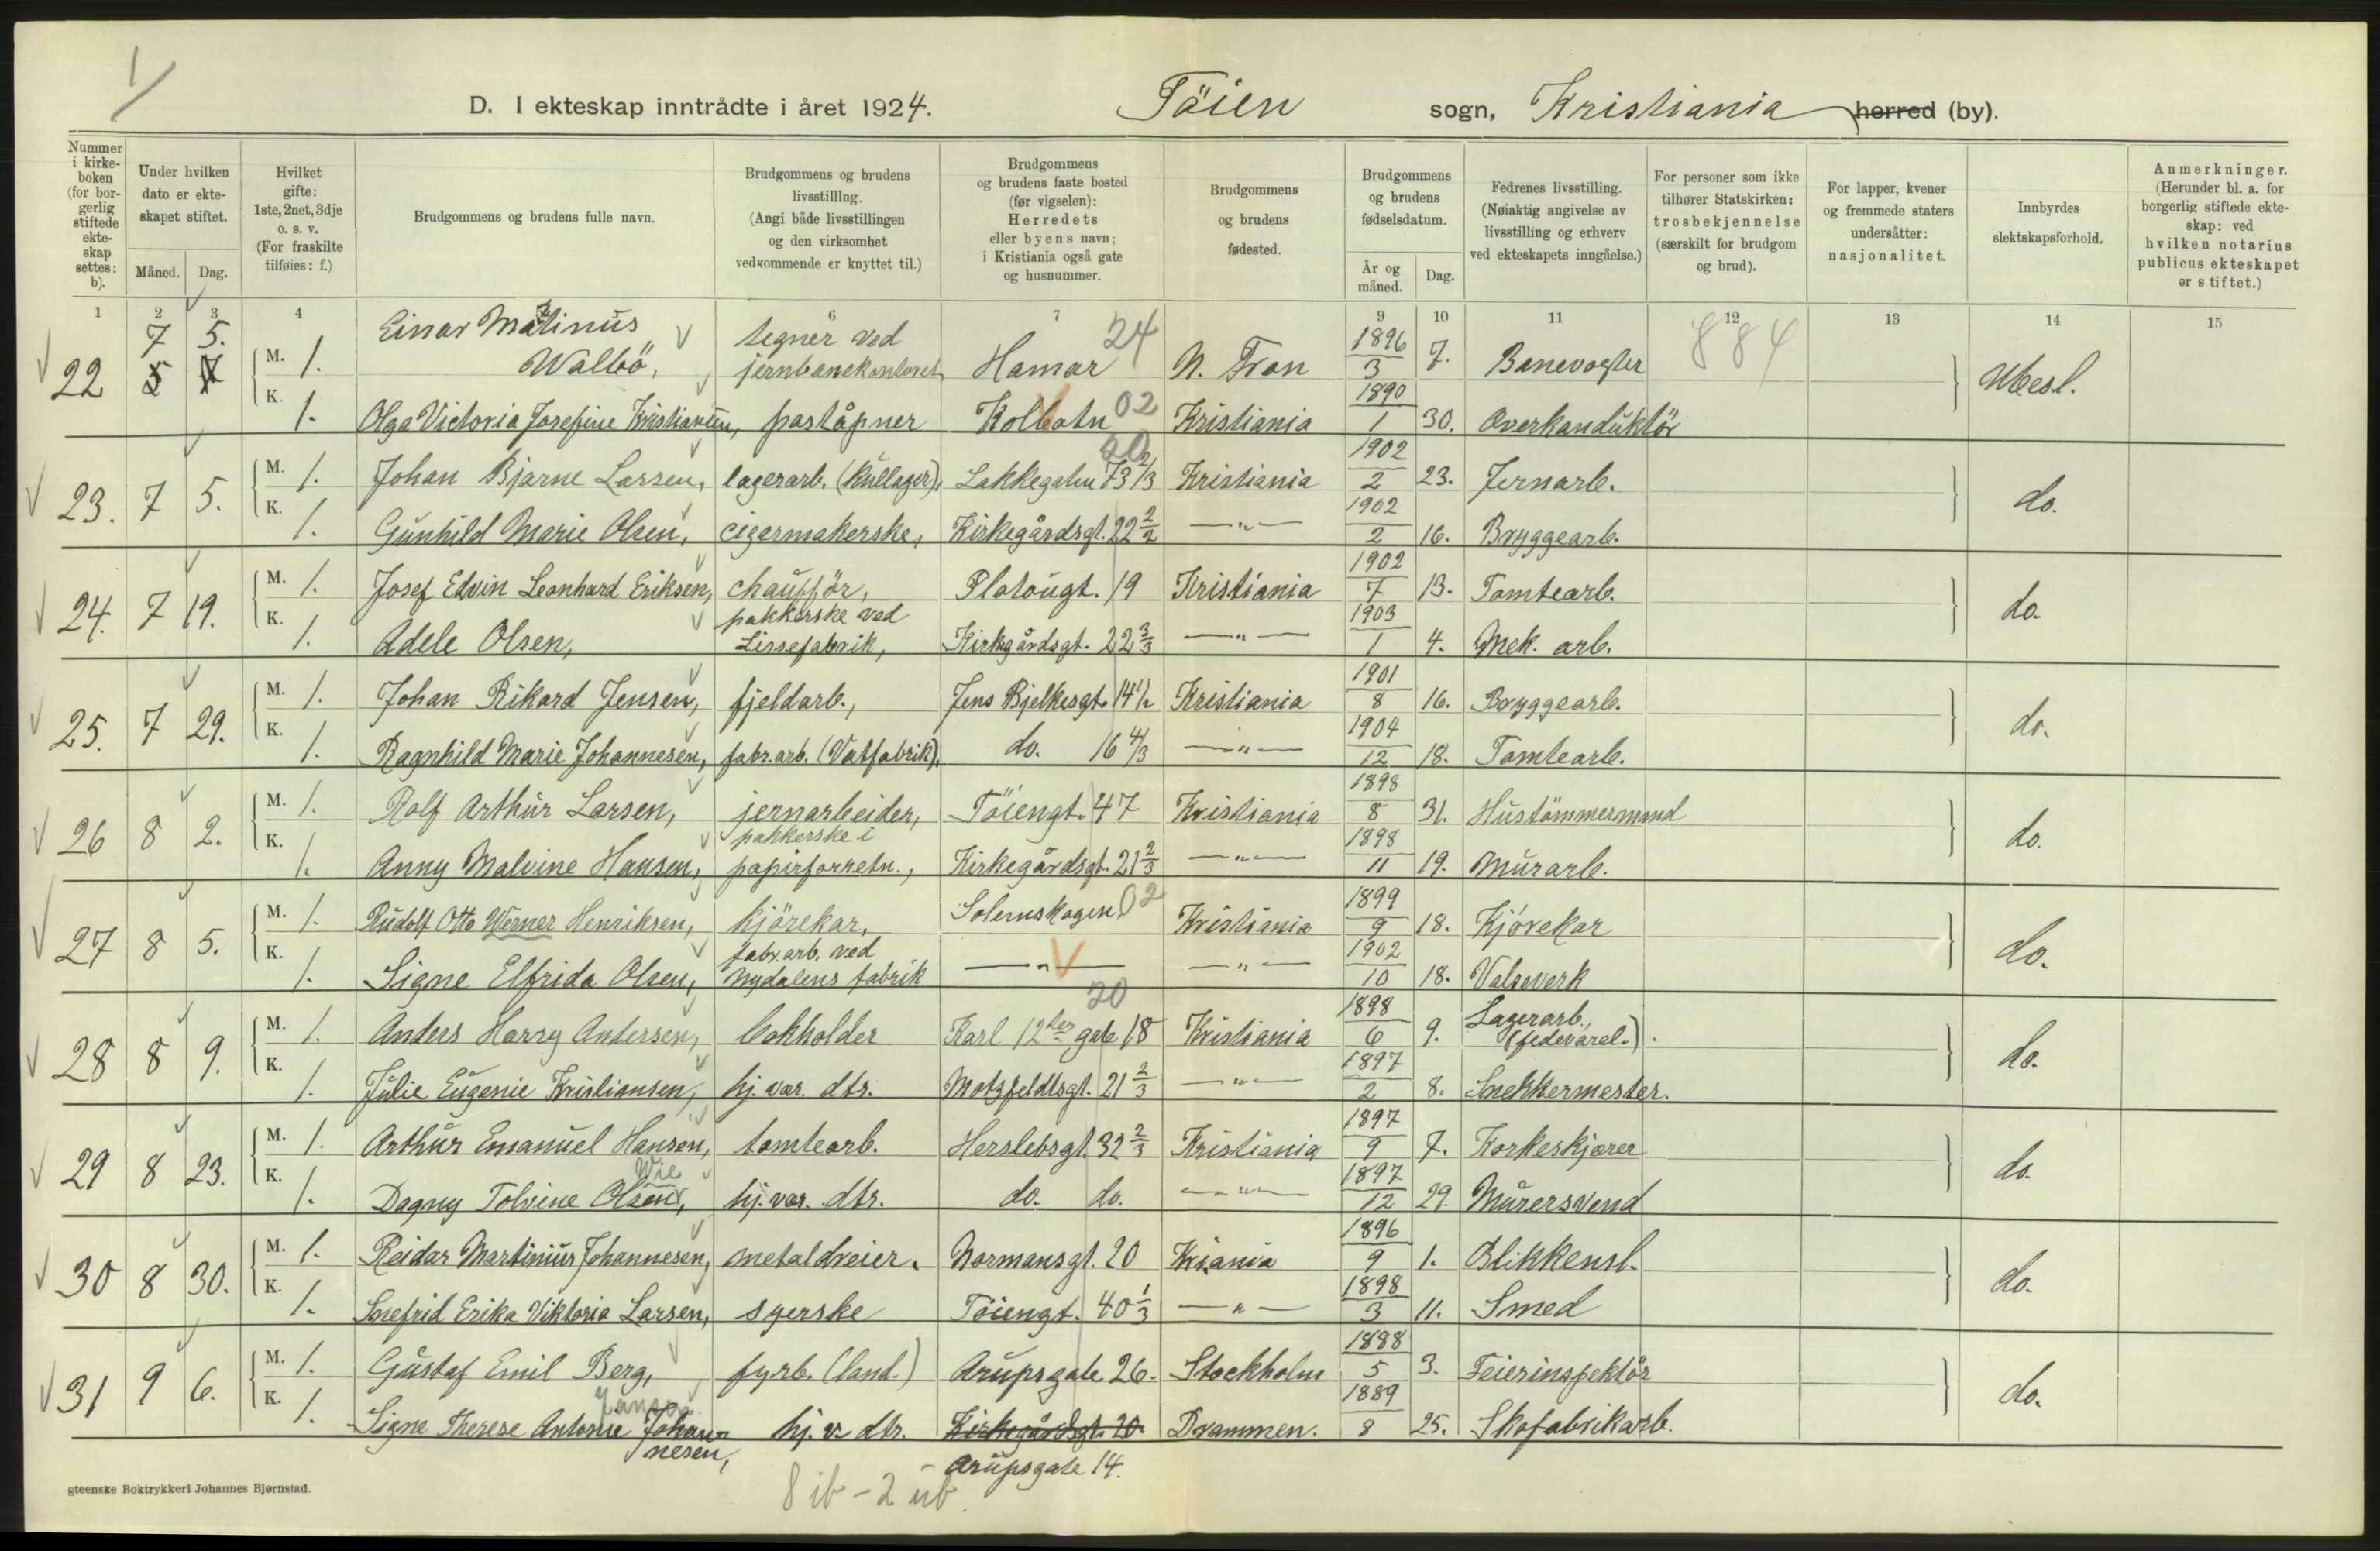 1/
D. I ekteskap inntrådte i året 1924. Töien sogn, Kristiania herred (by).
Nummer i kirke-boken (for bor-gerlig stiftede ekte-skap settes: b).
Under hvilken dato er ekte-skapet stiftet.
Måned. Dag.
Hvilket gifte: 1ste, 2net, 3dje o. s. v. (For fraskilte tilføies: f.)
Brudgommens og brudens fulle navn.
Brudgommens og brudens livsstilling. (Angi både livsstillingen og den virksomhet vedkommende er knyttet til.)
Brudgommens og brudens faste bosted (før vigselen): Herredets eller byens navn; i Kristiania også gate og husnummer.
Brudgommens og brudens fødested.
Brudgommens og brudens fødselsdatum.
År og måned. Dag.
Fedrenes livsstilling. (Nøiaktig angivelse av livsstilling og erhverv ved ekteskapets inngåelse.)
For personer som ikke tilhører Statskirken: trosbekjennelse (særskilt for brudgom og brud).
For lapper, kvener og fremmede staters undersåtter: nasjonalitet.
Innbyrdes slektskapsforhold.
Anmerkninger. (Herunder bl. a. for borgerlig stiftede ekte-skap: ved hvilken notarius publicus ekteskapet er stiftet.)
1 2 3 4 6 7 9 10 11 12 13 14 15
22 7 5. M. 1. Einar Matinus Walbö, tegner ved jernbanekontoret Hamar 24 N. Fron 1896 3 7. Banevogter 884 Ubesl.
5 7 K. 1. Olga Victoria Josefine Kristiansen, poståpner Kolbotn 02 Kristiania 1890 1 30. Overkonduktör
23. 7 5. M. 1. Johan Bjarne Larsen, lagerarb. (Kullager), Lakkegaten 73 2/3 20 Kristiania 1902 2 23. Jernarb. do.
K. 1. Gunhild Marie Olsen, cigarmakerske, Kirkegårdsgt. 22 2/2 —"— 1902 2 16. Bryggearb.
24. 7 19. M. 1. Josef Edvin Leonhard Eriksen, chaufför, Platougt. 19 Kristiania 1902 7 13. Tomtearb. do.
K. 1. Adele Olsen, pakkerske ved Lissefabrik, Kirkgårdsgt. 22 3/3 —"— 1903 1 4. Mek. arb.
25. 7 29. M. 1. Johan Rikard Jensen, fjeldarb., Jens Bjelkesgt. 14 1/2 Kristiania 1901 8 16. Bryggearb. do.
K. 1. Ragnhild Marie Johannesen, fabr.arb. (Vatfabrik). do. 16 4/3 —"— 1904 12 18. Tomtearb.
26 8 2. M. 1. Rolf Arthur Larsen, jernarbeider, Töiengt. 47 Kristiania 1898 8 31. Hustömmermand do.
K. 1. Anny Malvine Hansen, pakkerske i papirforretn., Kirkegårdsgt. 21 2/3 —"— 1898 11 19. Murarb.
27 8 5. M. 1. Rudolf Otto Werner Henriksen, kjörekar, Solemskogen 02 Kristiania 1899 9 18. Kjörekar do.
K. 1. Signe Elfrida Olsen, fabr.arb. ved Nydalens fabrik —"— —"— 1902 10 18. Valseverk
28 8 9. M. 1. Anders Harry Andersen, bokholder Karl 12tes gate 18 20 Kristiania 1898 6 9. Lagerarb. (federarel.). do.
K. 1. Julie Eugenie Kristiansen, hj. vær. dtr. Motzfeldtsgt. 21 2/3 —"— 1897 2 8. Snekkermester.
29 8 23. M. 1. Arthur Emanuel Hansen, tomtearb. Herslebsgt. 32 2/3 Kristiania 1897 9 7. Korkeskjærer do.
K. 1. Dagny Tolvine Olsen, Wie hj. vær. dtr. do. do. —"— 1897 12 29. Murersvend
30 8 30. M. 1. Reidar Martinius Johannesen, metaldreier. Normansgt. 20 Kr.ania 1896 9 1. Blikkensl. do.
K. 1. Snefrid Erika Viktoria Larsen, syerske Töiengt. 40 1/3 —"— 1898 3 11. Smed
31 9 6. M. 1. Gustaf Emil Berg, fyrb. (land.) Arupsgate 26. Stockholm 1888 5 3. Feierinspektör do.
K. 1. Signe Therese Antonie Johannesen, Jansen hj. v. dtr. Kirkegårdsgt. 20. Arupsgate 14. Drammen. 1889 8 25. Skofabrikarb.
8 ib - 2 ub.
steenske Boktrykkeri Johannes Bjørnstad.